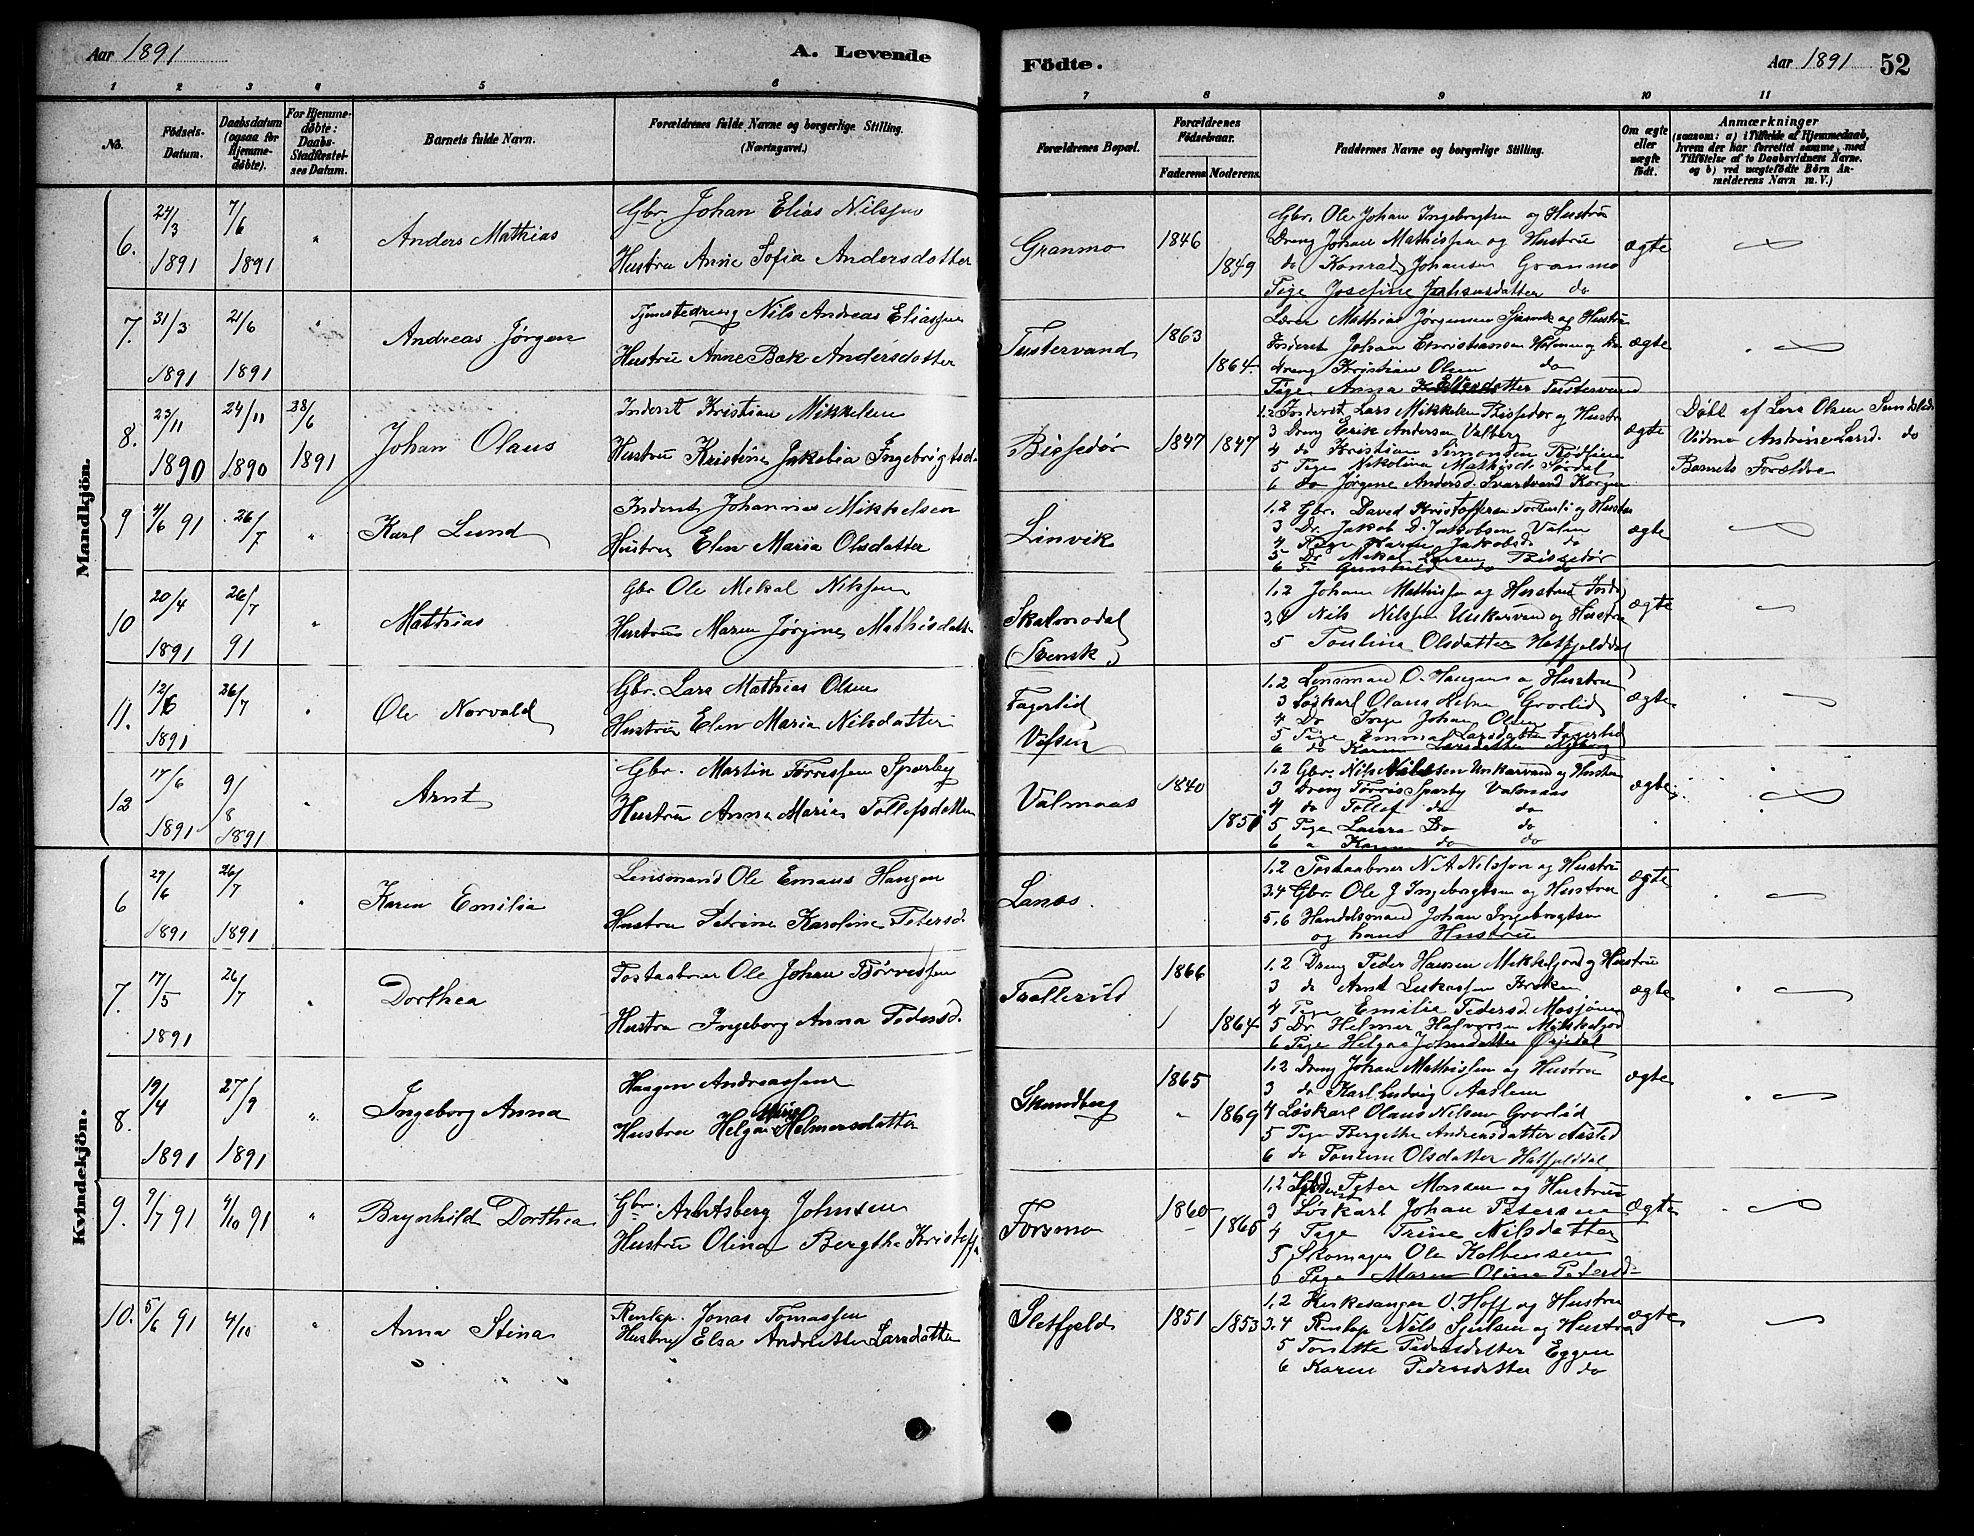 Aar 1891
A. Levende
Födte.
Aar 1891
52
1 2 3 4 5 6 7 8 9 10 11
No.
Födsels-
Datum.
Daabsdatum
(ogsaa for
Hjemme-
døbte).
For Hjemme-
døbte:
Daabs-
Stadfæstel-
ses Datum.
Barnets fulde Navn.
Forældrenes fulde Navne og borgerlige Stilling.
(Næringsvei.)
Forældrenes Bopæl.
Forældrenes
Födselsaar.
Faderens. Moderens.
Faddernes Navne og borgerlige Stilling.
Om ægte
eller
uægte
födt.
Anmærkninger
(saasom: a) i Tilfælde af Hjemmedaab,
hvem der har forrettet samme, med
Tilføielse af to Daabsvidners Navne.
og b) ved uægtefødte Børn An-
melderens Navn m. V.)
Mandkjön.
6. 24/3 1891 7/6 1891 " Anders Mathias
Gbr. Johan Elias Nilssen
Hustru Anne Sofia Andersdatter
Granmo 1846 1849
Gbr. Ole Johan Ingebrigtsen og Hustru
Dreng Johan Mathissen og Hustru
do Konrad Johansen Granmo
Pige Josefine Johansdatter do
ægte
7. 31/3 1891 21/6 1891 " Andreas Jørgen
Tjenestedreng Nils Andreas Eliassen
Hustru Anne Bak Andersdatter
Tustervand 1863 1864.
Lærer Mathias Jørgensen Sjurvik og Hustru
Inderst Johan Christiansen Holmen og do
Dreng Kristian Olsen do
Pige Anna Eliasdatter Tustervand
ægte
8. 23/11 1890 24/11 1890 28/6 1891 Johan Olaus
Inderst Kristian Mikkelsen
Hustru Kristine Jakobia Ingebrigtsd.
Bissedør 1847 1847
1,2 Inderst Lars Mikkelsen Bissedør og Hustru
3 Dreng Erik Andersen Valberg
4 do Kristian Simonsen
5 Pige Nikolina Mathisd.
6 do Jørgine Andersd. Svartvand Korgen
ægte
Døbt af Lars Olsen
Vidner Antrine Larsd. do
Barnets Forældre
9 4/6 91 26/7 " Karl Lund
Inderst Johannes Mikkelsen
Hustru Elen Maria Olsdatter
Linvik
1,2 Gbr. David Kristoffersen og Hustru
3 Dr. Jakob D. Jakobsen Valen
4 Pige Karen Jakobsd. do
5 Dr. Mikal Larsen Bissedør
6 P. Gunhild do do
ægte
10 20/4 1891 26/7 91 " Mathias
Gbr Ole Mikal Nilssen
Hustru Maren Jørgine Mathisdatter
Skalmodal
(Svensk)
1,2 Johan Mathissen og Hustru
3,4 Nils Nilssen Unkarvand og Hustru
5 Paulina Olsdatter Hatfjelddal
ægte
11. 12/6 1891 26/7 " Ole Norvald
Gbr. Lars Mathias Olsen
Hustru Elen Maria Nilsdatter
Fagerlid
Vefsen
1,2 Lensmand O. Haugen og Hustru
3 Løskarl Olaus Grovlid
4 Dr Johan Olsen
5 Pige Emma Larsdatter Fagerlid
6 do Karen Larsdatter Nyborg
ægte
12 17/6 1891 9/8 1891 " Arnt
Gbr. Martin Tørrissen Sparby
Hustru Anna Maria Tollefsdatter
Valmaas 1840 1851
1,2 Gbr. Nils Nilssen Unkarvand og Hustru
3 Dreng Tørris Sparby Valmaas
4 do Tollef do do
5 Pige Laura Do do
6 " Karen do do
ægte
Kvindekjön.
6 29/6 1891 26/7 1891 " Karen Emilia
Lensmand Ole Emaus Haugen
Hustru Petrine Karoline Petersd.
Lanes.
1,2 Postaabner N. A. Nilsson og Hustru
3.4 Gbr. Ole J Ingebrigtsen og Hustru
5,6 Handelsmand Johan Ingebrigtsen
og hans Hustru
ægte
7. 17/5 1891 26/7 " Dorthea
Postaabner Ole Johan Tørrissen
Hustru Ingeborg Anna Pedersd.
Trallerud 1866 1864
1,2 Dreng Peder Hansen Mikkeljord og Hustru
3 do Arnt Lukassen
4 Pige Emilie Pedersd. Mosjøen
5 Dr Helmer Halvorsen Mikkeljord
6 Pige Helga Johnsdatter
ægte
8. 19/4 1891 27/9 1891 " Ingeborg Anna
Haagen Andreassen
Hustru Helga Marie Helmersdatter
Skundberg 1865 1869
1,2 Dreng Johan Mathissen og Hustru
3 do Karl Ludvig Aaslem
4 Løskarl Olaus Nilsen Grovlid
5 Pige Bergithe Andreasdatter Aasted
6 do Pauline Olsdatter Hatfjelddal
ægte
9. 9/7 91 4/10 91 " Brynhild Dorthea
Gbr. Arntsberg Johnsen
Hustru Olina Bergthe Kristoff.
Forsmo 1860 1865
1,2 Peter Monsen og Hustru
3 Løskarl Johan Petersen
4 Pige Trine Nilsdatter
5 Skomager Ole Kolbensen
6 Pige Maren Olina Petersd.
ægte
10. 5/6 91 4/10 " Anna Stina
Renlap. Jonas Tomassen
Hustru Elsa Andriette Larsdatter
Sletfjeld 1851 1853
1,2 Kirkesanger O. Hoff og Hustru
3.4 Renlap Nils Sjulsen og Hustru
5 Pedersdatter Eggen
6 Karen Pedersdatter do
ægte